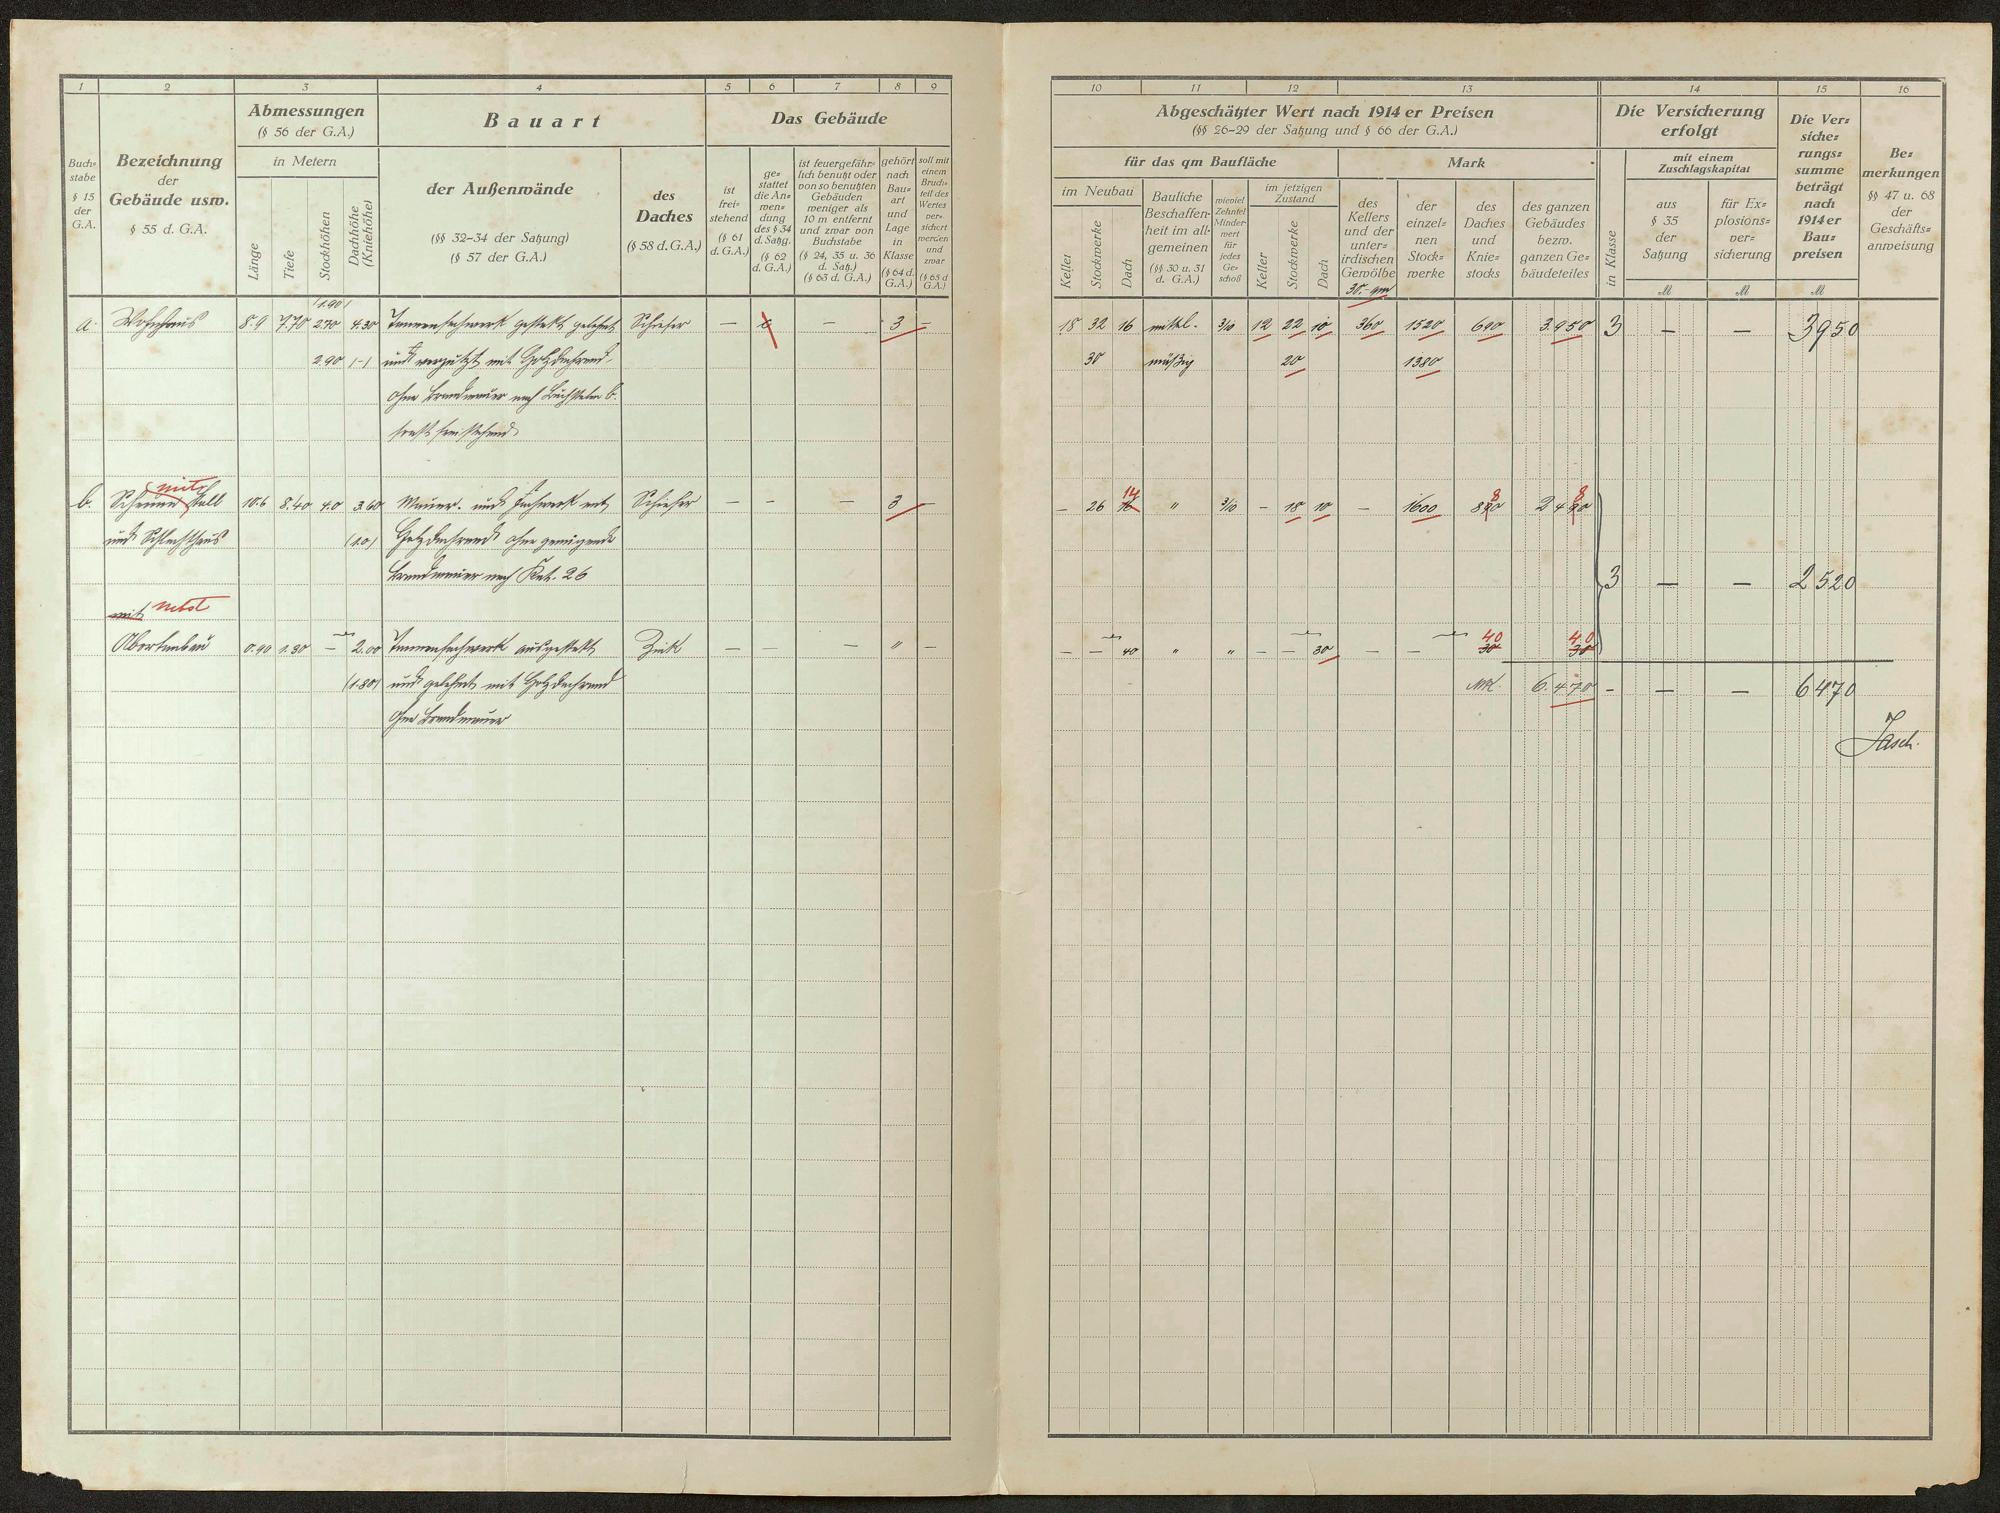 1 2 3 4 5 6 7 8 9
Buch=
stabe
§ 15
der
G.A.
Bezeichnung
der
Gebäude usw.
§ 55 d. G.A.
Abmessungen
(§ 56 der G.A.)
in Metern
Länge
Tiefe
Stockhöhen
Dachhöhe
(Kniehöhe)
Bauart
der Außenwände
(§§ 32-34 der Satzung)
(§ 57 der G.A.)
des
Daches
(§ 58 d.G.A.)
Das Gebäude
ist
frei=
stehend
(§ 61
d. G.A.)
ge=
stattet
die An=
wen=
dung
des § 34
d. Satzg.
(§ 62
d. G.A.)
ist feuergefähr=
lich benutzt oder
von so benutzten
Gebäuden
weniger als
10 m entfernt
und zwar von
Buchstabe
(§ 24, 35 u. 36
d. Satz.)
(§ 63 d. G.A.)
gehört
nach
Bau=
art
und
Lage
in
Klasse
(§ 64 d.
G.A.)
soll mit
einem
Bruch=
teil des
Wertes
ver=
sichert
werden
und
zwar
(§ 65 d
G.A.)
(1.90)
a. Wohnhaus 8.9 7.70 2.70 4.30 Tannenfachwerk gestekt gelehmt Schiefer — — 3 —
2.90 (-) und verputzt mit Holzdachrand.
Ohne Brandmauer nach Buchstaben b.
sonst freistehend
mit
b. Scheune Stall 10.6 8.40 4.0 3.60 Mauer- und Fachwerk mit Schiefer — — — 3 —
und Schlachthaus (1.0) Holzdachrand ohne genügende
Brandmauer nach Kat. 26
mit nebst
Abortanbau 0.90 1.30 — 2.00 Tannenfachwerk ausgestekt Zink — — — " —
(1.80) und gelehmt mit Holzdachrand
Ohne Brandmauer
10 11 12 13 14 15 16
Abgeschätzter Wert nach 1914 er Preisen
(§§ 26-29 der Satzung und § 66 der G.A.)
für das qm Baufläche
Mark
im Neubau
Keller
Stockwerke
Dach
Bauliche
Beschaffen=
heit im all=
gemeinen
(§§ 30 u. 31
d. G.A.)
wieviel
Zehntel
Minder=
wert
für
jedes
Ge=
schoß
im jetzigen
Zustand
Keller
Stockwerke
Dach
des
Kellers
und der
unter=
irdischen
Gewölbe
30.- qm
der
einzel=
nen
Stock=
werke
des
Daches
und
Knie=
stocks
des ganzen
Gebäudes
bezw.
ganzen Ge=
bäudeteiles
Die Versicherung
erfolgt
in Klasse
mit einem
Zuschlagskapital
aus
§ 35
der
Satzung
M
für Ex=
plosions=
ver=
sicherung
M
Die Ver=
siche=
rungs=
summe
beträgt
nach
1914 er
Bau=
preisen
M
Be=
merkungen
§§ 47 u. 68
der
Geschäfts=
anweisung
18 32 16 mittel. 3/10 12 22 10 360 1520 690 3.950 3 — — 3950
30 mäßig 20 1380
14 8 8
— 26 16 " 3/10 — 18 10 — 1600 890 2490
3 — — 2520
40 40
— — 40 " " — — 30 — — 30 30
MK. 6.470 — — — 6470
Jasch.